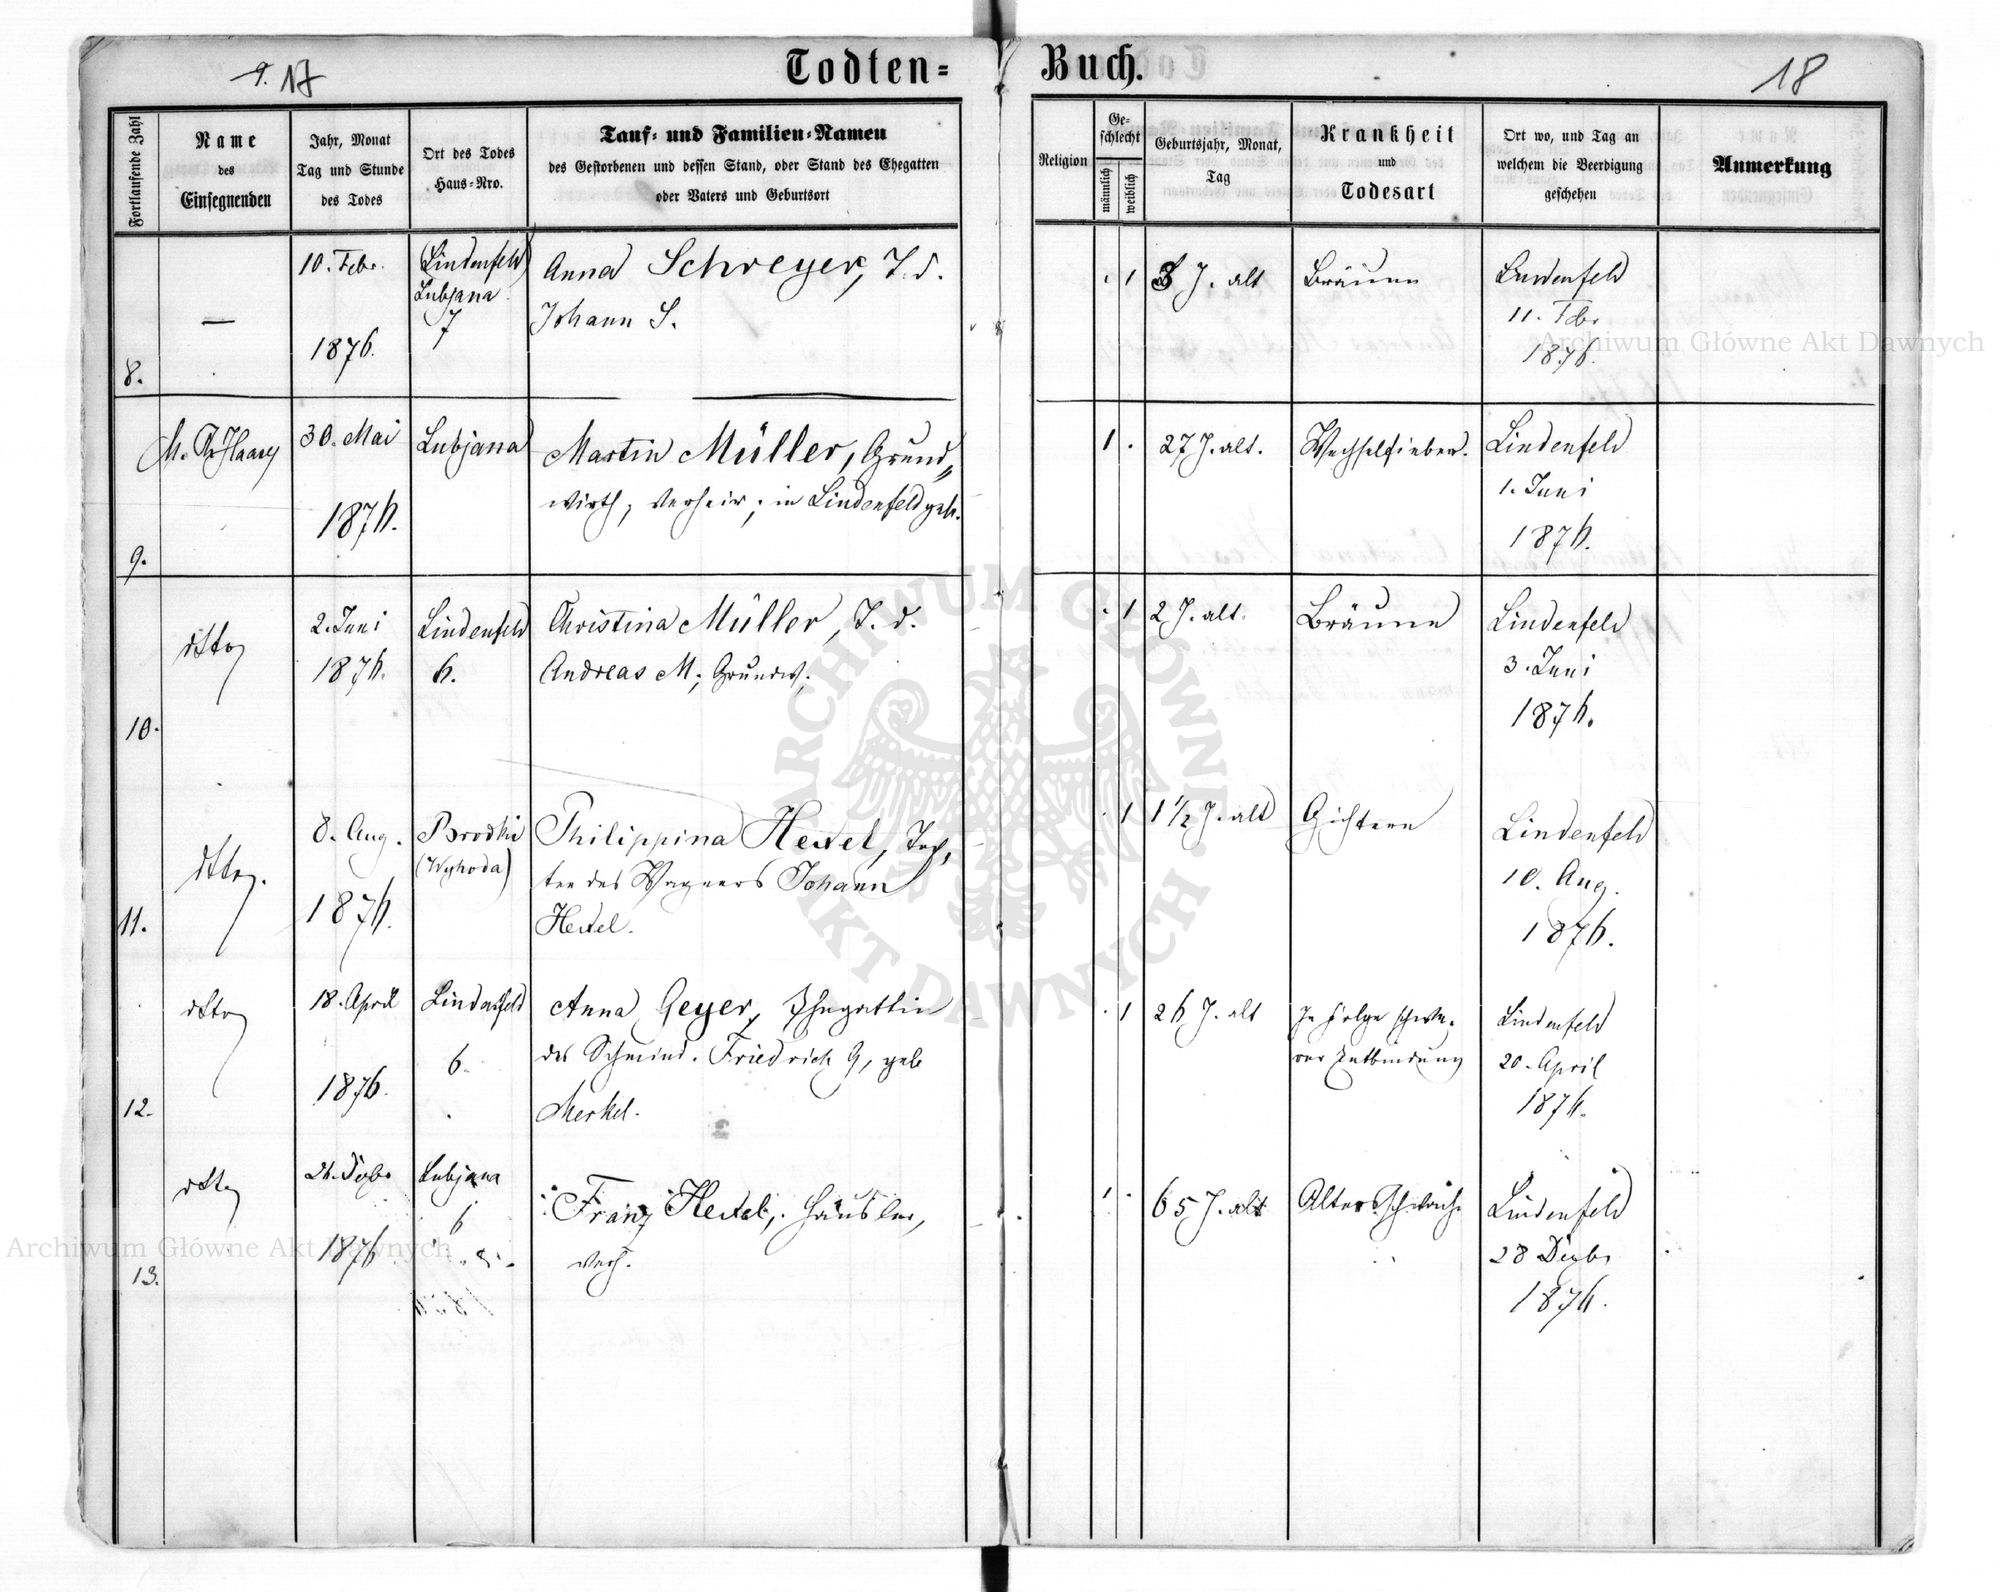 9. 17
Todten= Buch.
18
Fortlaufende Zahl
Name
des
Einsegnenden
Jahr, Monat
Tag und Stunde
des Todes
Ort des Todes
Haus=Nro.
Tauf= und Familien=Namen
des Gestorbenen und dessen Stand, oder Stand des Ehegatten
oder Vaters und Geburtsort
Religion
Ge-
schlecht
männlich
weiblich
Geburtsjahr, Monat,
Tag
Krankheit
und
Todesart
Ort wo, und Tag an
welchem die Beerdigung
geschehen
Anmerkung
8.
—
10. Febr.
1876.
(Lindenfeld)
Lubjana.
7
Anna Schreyer, T. d.
Johann S.
. 1
8 J. alt
Bräune
Lindenfeld
11. Febr
1876.
9.
30. Mai
1876.
Lubjana
Martin Müller, Grund„
wirth, verheir., in Lindenfeld geb.
1 .
27 J. alt.
Wechselfieber.
Lindenfeld
1. Juni
1876.
10.
dtto
2. Juni
1876.
Lindenfeld
6.
Christina Müller, T. d.
Andreas M., Grundw.
. 1
2 J. alt.
Bräune
Lindenfeld
3. Juni
1876.
11.
dtto.
8. Aug.
1876.
Brodki
(Wyhoda)
Philippina Hexel, Toch„
ter des Wagners Johann
Hexel.
. 1
1 1/2 J. alt
Gichtern
Lindenfeld
10. Aug.
1876.
12.
dtto
18. April
1876.
Lindenfeld
6.
Anna Geyer, Ehegattin
des Schmied. Friedrich G, geb
Merkel.
. 1
26 J. alt
In Folge schwe„
rer Entbindung
Lindenfeld
20. April
1876.
13.
dtto
26. Dezbr
1876.
Lubjana
6
Franz Hexel, Häusler,
verh.
1 .
65 J. alt
Altersschwäche
Lindenfeld
28 Dezbr
1876.
Archiwum Główne Akt Dawnych
ARCHIWUM GŁÓWNE AKT DAWNYCH
Archiwum Główne Akt Dawnych